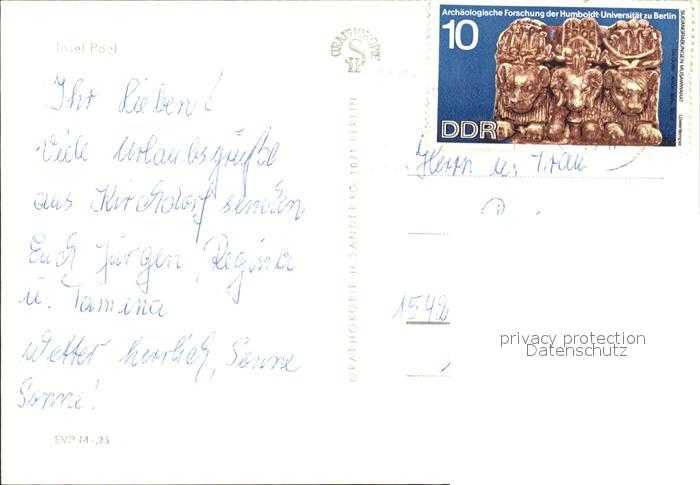 Insel Poel
Ihr Lieben!
Viele Urlaubsgrüße
aus Kirchdorf senden
Euch Jürgen, Regina
u. Tamina
Wetter herrlich, Sonne
Sonne!
EVP M -,25
GRAPHOKOPIE
GRAPHOKOPIE H. SANDER KG. 1071 BERLIN
Archäologische Forschung der Humboldt-Universität zu Berlin
10
DDR
SUDANGRABUNGEN MUSAWWARAT
Löwentempel
Herrn u. Frau
1542
privacy protection
Datenschutz